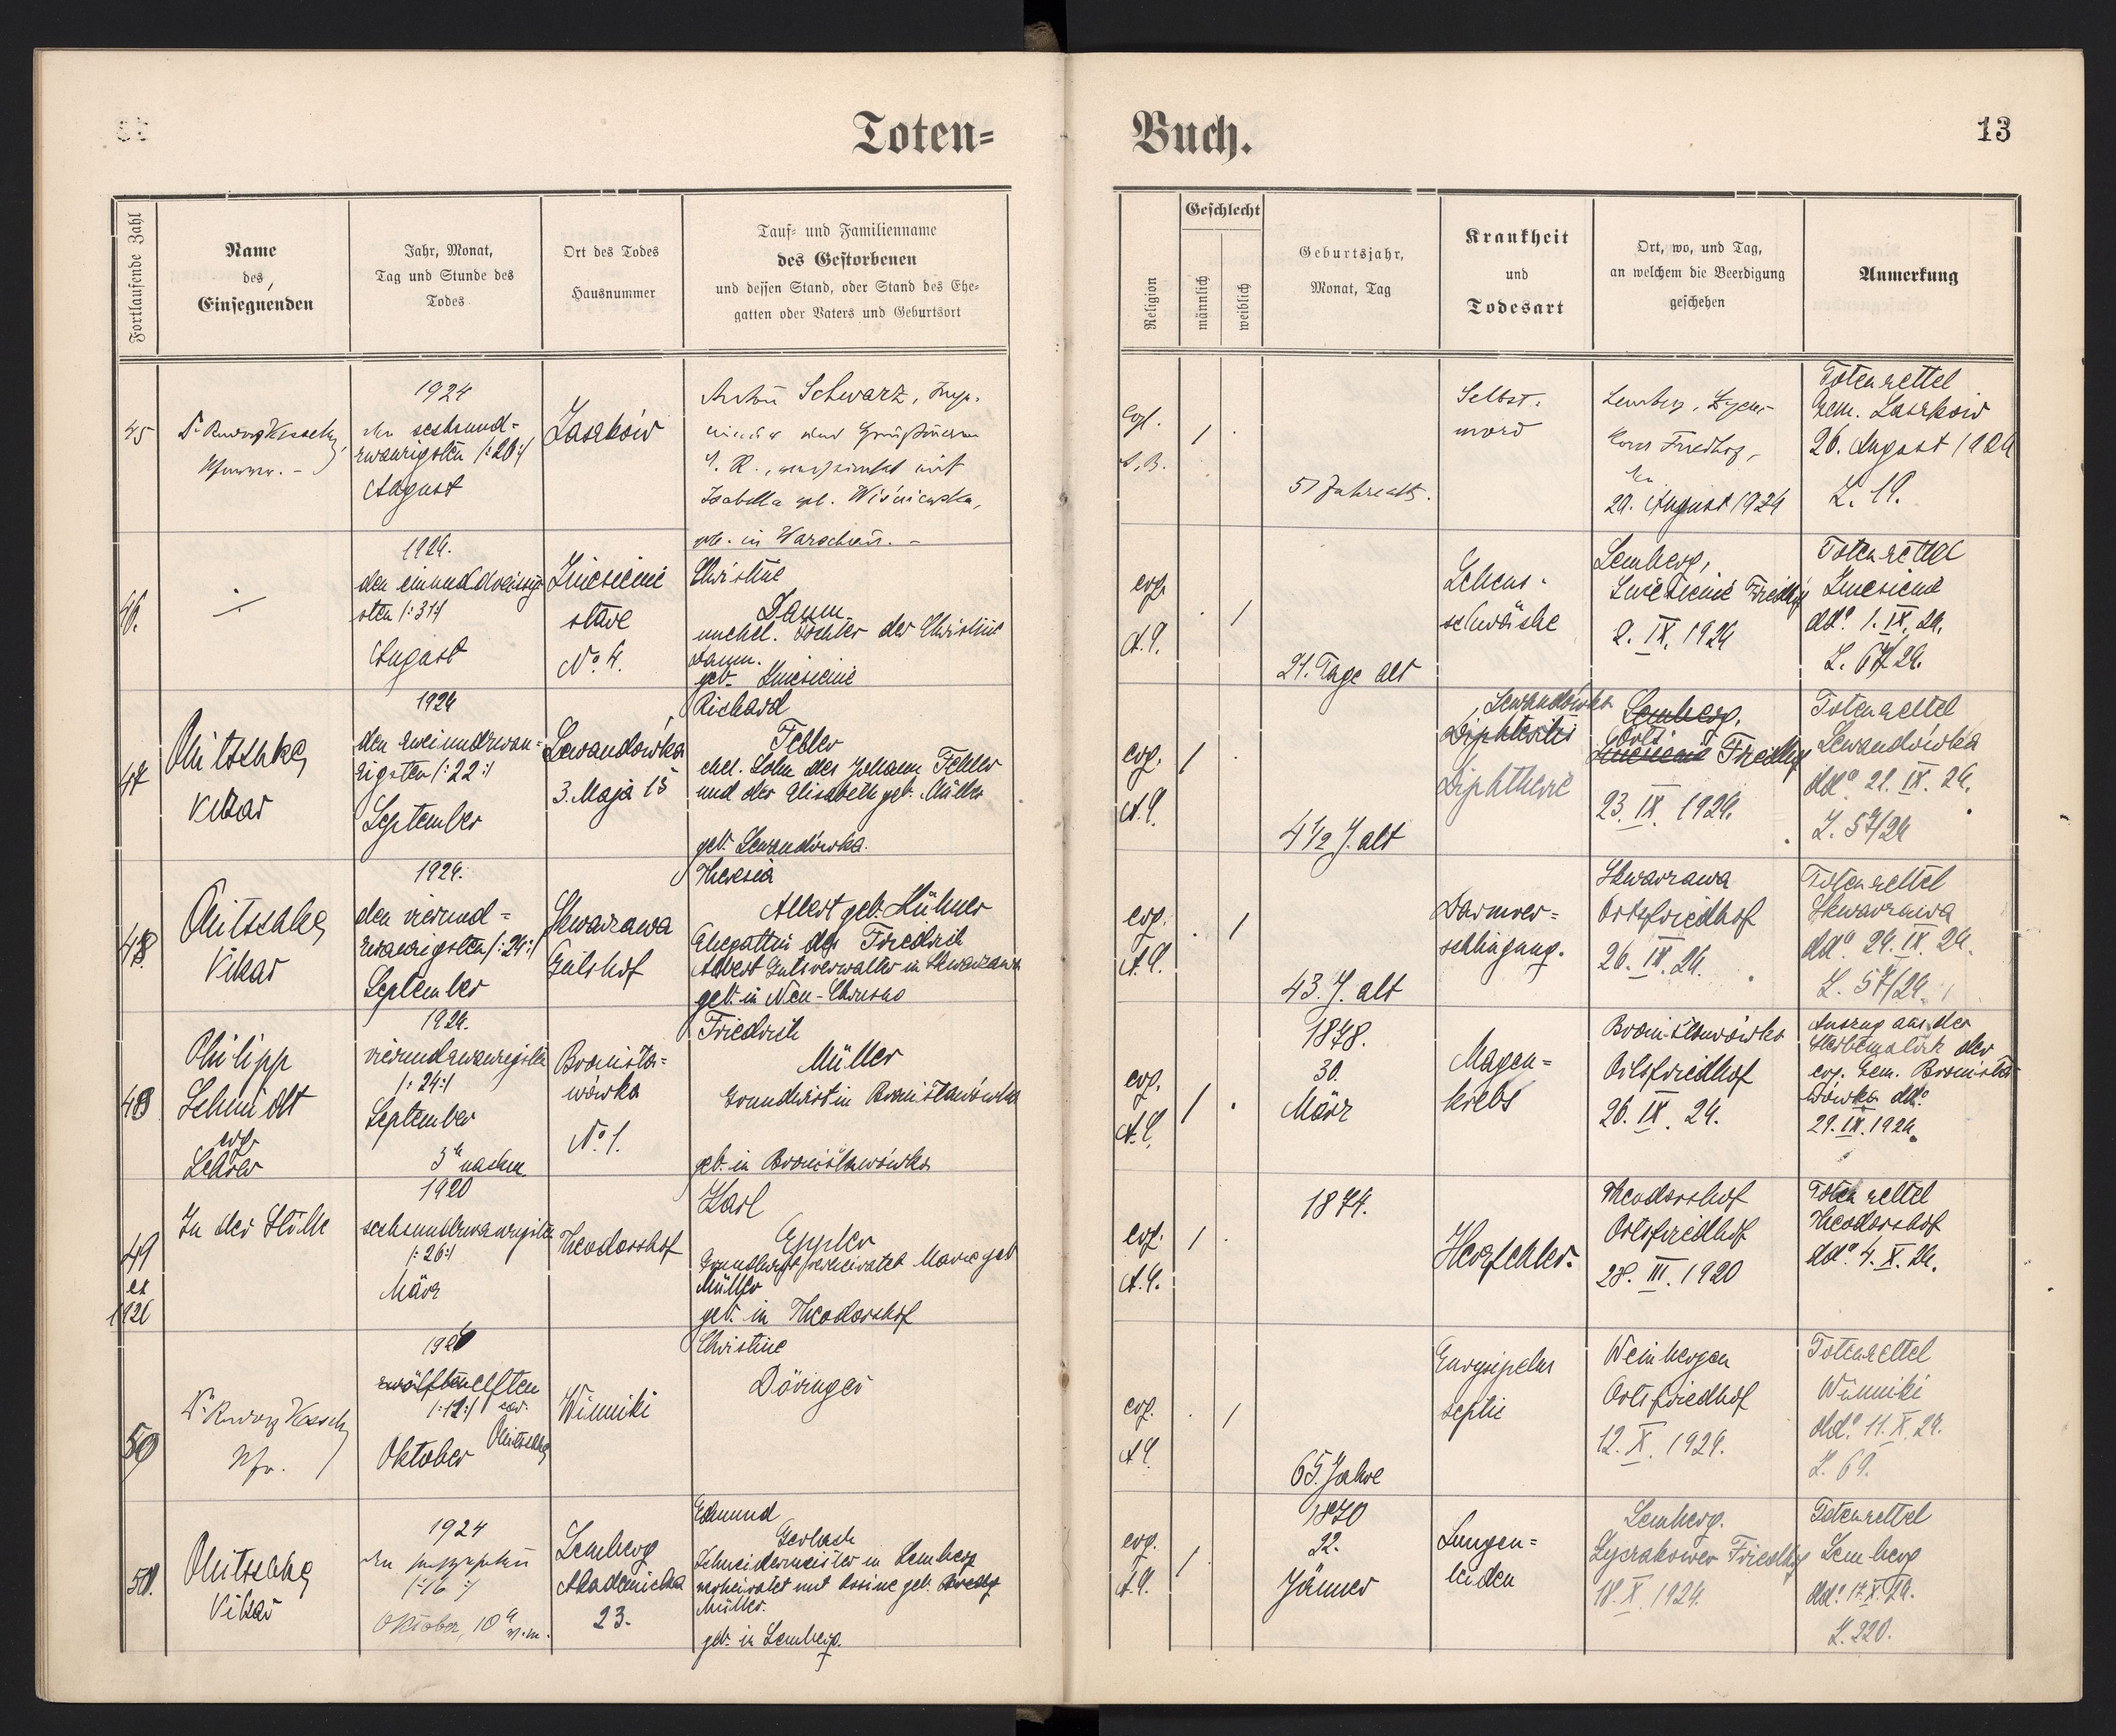 Toten-
Buch.
13
Fortlaufende Zahl
Name
des
Einsegnenden
Jahr, Monat,
Tag und Stunde des
Todes
Ort des Todes
Hausnummer
Tauf- und Familienname
des Gestorbenen
und dessen Stand, oder Stand des Ehe-
gatten oder Vaters und Geburtsort
Religion
Geschlecht
männlich
weiblich
Geburtsjahr,
Monat, Tag
Krankheit
und
Todesart
Ort, wo, und Tag,
an welchem die Beerdigung
geschehen
Anmerkung
45
Dr Rudolf Kesselring
Pfarrer. -
1924
den sechsund-
zwanzigsten /:26:/
August
Laszków
Schwarz, Ing.
verheiratet mit
Isabella geb. Wiśniewska,
geb. in Warschau. -
evgl.
/
51 Jahre alt.
Selbst-
mord
Lemberg,
Friedhof,
den
29. August 1924
Totenzettel
Gem. Laszków
26. August 1924
Z. 19.
46.
1924.
den einunddreissig-
sten /:31:/
August
Zniesienie
stare
No. 4.
Christine
Daum.
unehel. Tochter der Christine
Daum.
geb. Zniesienie
evg.
A.C.
/
21. Tage alt
Lebens-
schwäche
Lemberg,
Zniesienie Friedhof
2. IX. 1924
Totenzettel
Zniesienie
ddo. 1. IX. 24.
Z. 67/24.
47
Mitschke
Vikar
1924
den zweiundzwan-
zigsten /:22:/
September
Lewandówka
3. Maja 15
Richard
Feller
ehel. Sohn des Johann Feller
und der Elisabeth geb. Müller
geb. Lewandówka.
evg.
A.C.
/
4 1/2 J. alt
Diphteritis
Diphtherie
Lewandówka
Lemberg,
Orts
Zniesienie Friedhof
23. IX. 1924.
Totenzettel
Lewandówka
ddo 21. IX. 24.
Z. 57/24
48
Mitschke
Vikar
1924.
den vierund-
zwanzigsten /:24:/
September
Skwarzawa
Gutshof
Theresia
Albert geb. Hübner
Ehegattin des Friedrich
Albert Gutsverwalter in Skwarzawa
geb. in Neu-Chrusno
evg.
A.C.
/
43. J. alt
Darmver-
schlingung.
Skwarzawa
Ortsfriedhof
26. IX. 24.
Totenzettel
Skwarzawa
ddo 24. IX. 24.
Z. 57/24.
48
Philipp
Schmidt
evg.
Lehrer
1924.
vierundzwanzigsten
/:24:/
September
3h nachm
Bronisła-
wówka
No. 1.
Friedrich
Müller
Grundwirt in Bronisławówka
geb. in Bronisławówka
evg.
A.C.
/
1878.
30.
März
Magen-
krebs
Bronisławówka
Ortsfriedhof
26. IX. 24.
Auszug aus der
Sterbematrik der
evg. Gem. Bronisła-
wówka ddo.
29. IX. 1924.
49
ex
1920
In der Stille
1920
sechsundzwanzigsten
/:26:/
März
Theodorshof
Karl
Eppler
Grundwirt verheiratet Marie geb
Müller
geb. in Theodorshof
evg.
A.C.
/
1874.
Herzfehler.
Theodorshof
Ortsfriedhof
28. III. 1920
Totenzettel
Theodorshof
ddo. 4. X. 24.
50
Dr Rudolf Kesselring
Pfr.
1924
zwölften elften
Oktober
Mitschke
Winniki
Christine
Döringer
evg.
A.C.
/
65. Jahre
Weinbergen
Ortsfriedhof
12. X. 1924.
Totenzettel
Winniki
ddo. 11. X. 24.
Z. 69.
51.
Mitschke
Vikar
1924
den sechzehnten
/:16:/
Oktober, 10h v.m.
Lemberg
Akademicka
23.
Edmund
Gerlach
Schneidermeister in Lemberg
verheiratet mit Rosine geb.
Müller.
geb. in Lemberg.
evg.
A.C.
/
1870
22.
Jänner
Lungen-
leiden
Lemberg.
Łyczakower Friedhof
18. X. 1924.
Totenzettel
Lemberg
ddo. 17. X. 24.
Z. 220.